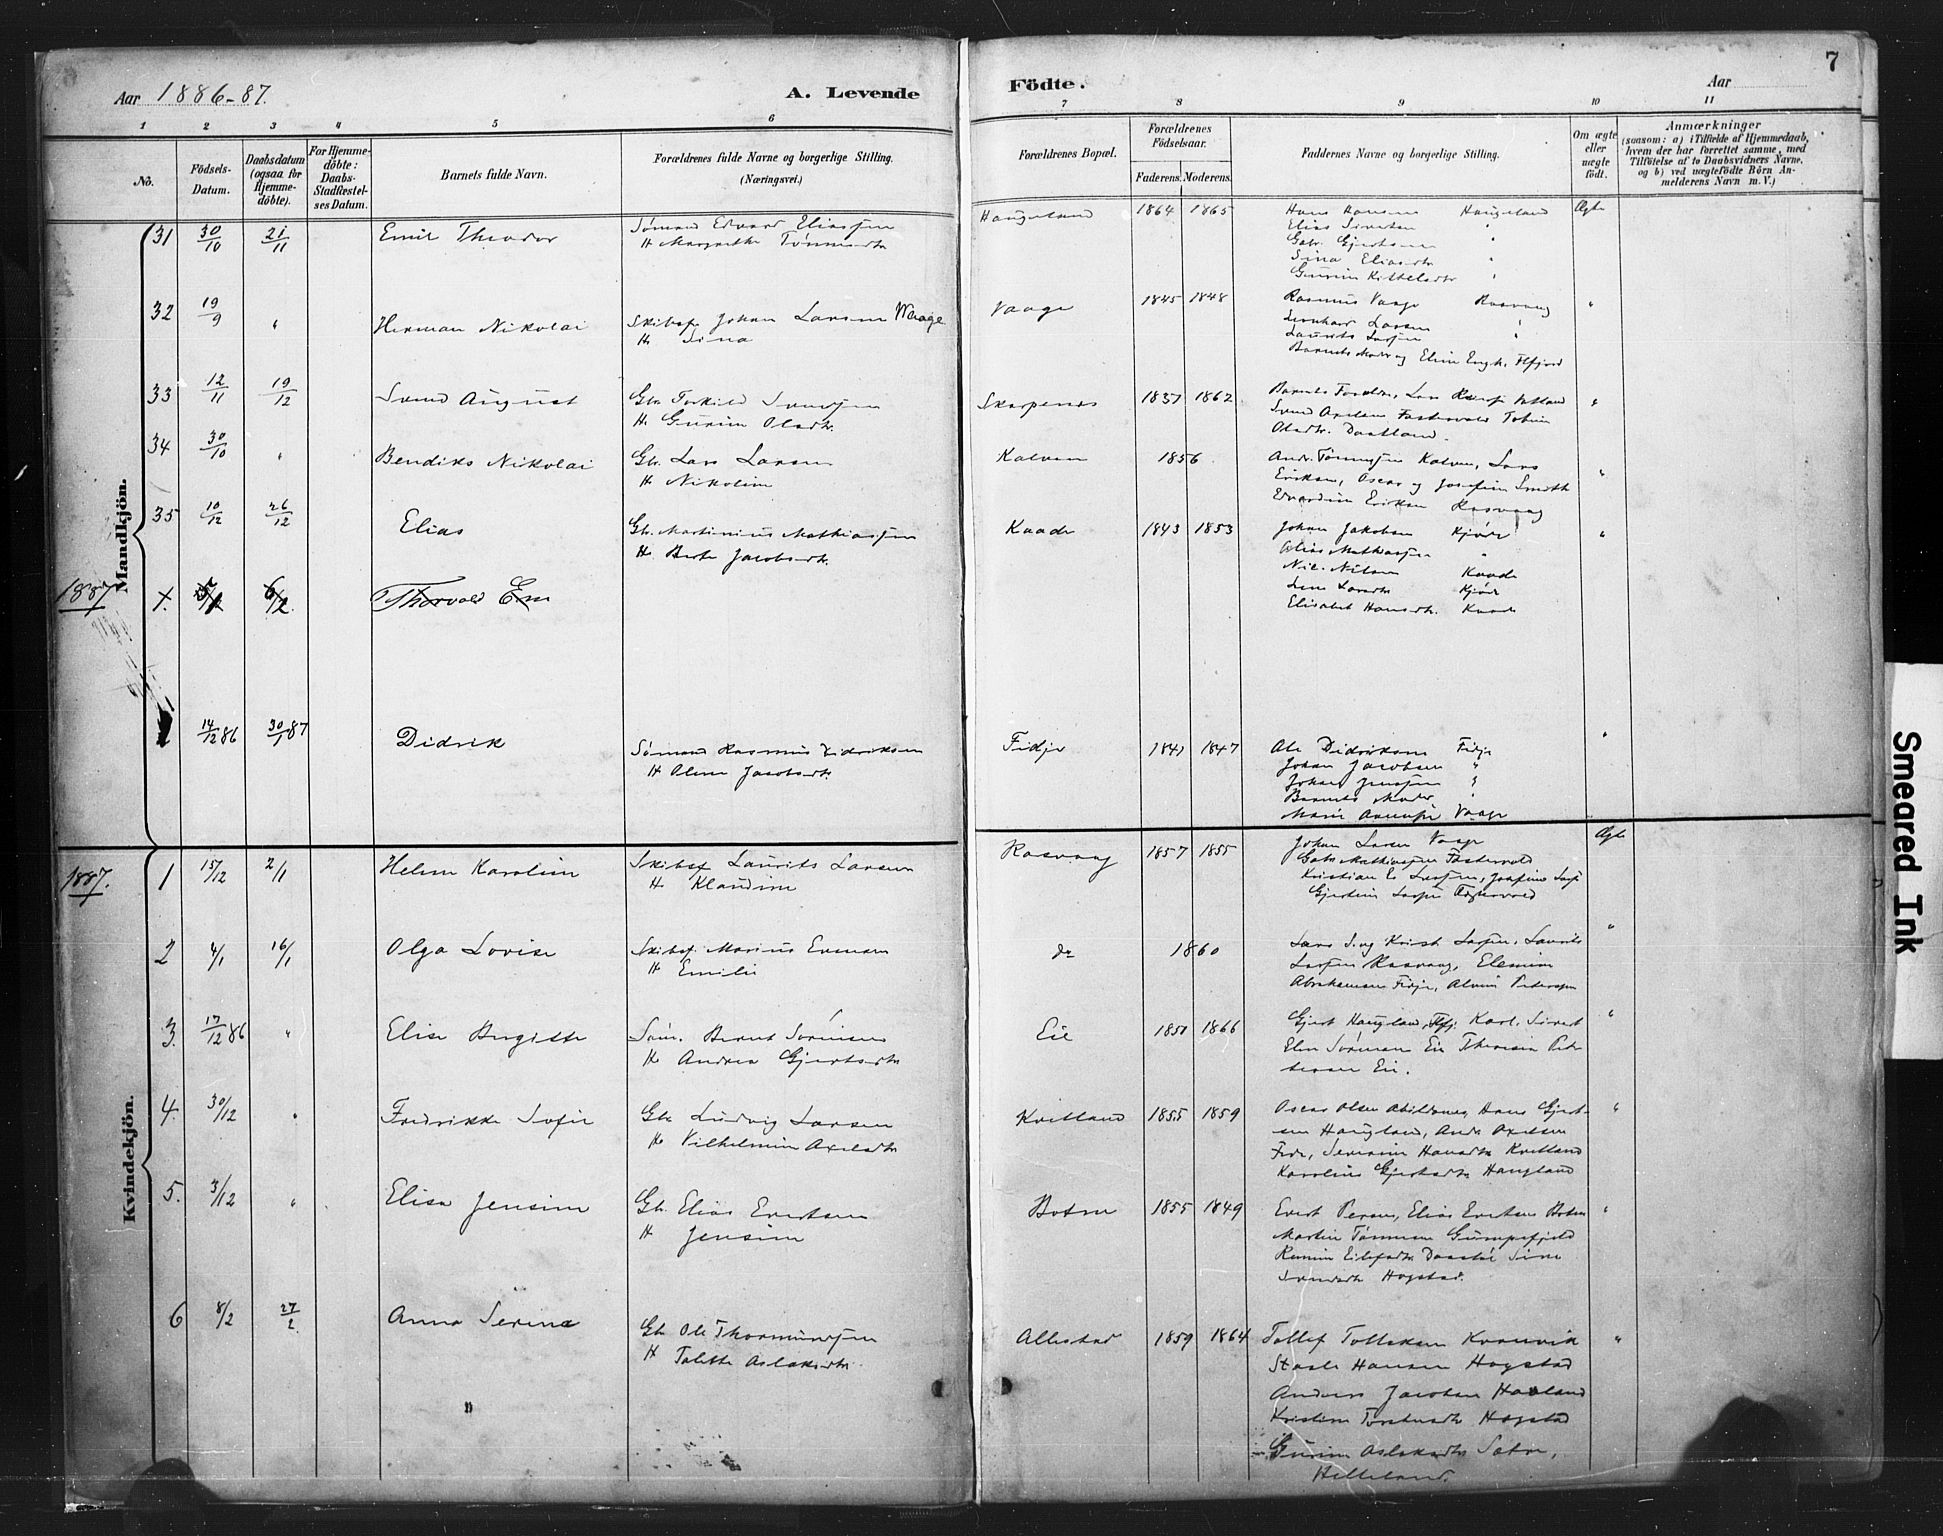 7
Aar 1886-87.
A. Levende
Födte.
Aar
1 2 3 4 5 6 7 8 9 10 11
No.
Födsels-Datum.
Daabsdatum (ogsaa for Hjemme-döbte).
For Hjemme-döbte: Daabs-Stadfæstel-ses Datum.
Barnets fulde Navn.
Forældrenes fulde Navne og borgerlige Stilling.
(Næringsvei.)
Forældrenes Bopæl.
Forældrenes Födselsaar.
Faderens. Moderens.
Faddernes Navne og borgerlige Stilling.
Om ægte eller uægte födt.
Anmærkninger
(saasom: a) i Tilfælde af Hjemmedaab, hvem der har forrettet samme, med Tilföielse af to Daabsvidners Navne, og b) ved uægtefödte Börn An-melderens Navn m. V.)
Mandkjön.
31 30/10 21/11 Emil Theodor
Sømand Edvard Eliassen
H. Margrethe Tønnesdtr
Haugeland 1864 1865
Hans Hansen Haugeland Ægte
Elias Sivertsen "
Gabr. Gjertsen "
Sina Eliasdtr "
Gunine Kittelsdtr "
32 19/9 " Herman Nikolai
Skibsf. Johan Larsen Waage
H. Sina
Vaage 1845 1848
Rasmus Vaage Rasvaag "
Lernhard Larsen "
Laurits Larsen "
Barnets Moder og Eline
33 12/11 19/12 Svend August
Gbr. Torkild Svendsen
H. Gurine Olsdtr.
Skarpenes 1837 1862
Barnets Forældre, Lars
Svend Axelsen Fastervold Tobine
Olsdtr. Daatland.
34 30/10 " Bendiks Nikolai
Gbr. Lars Larsen
H. Nikoline
Kalven 1856
Andr. Tønnesen Kalven, Lars
Eriksen, Oscar og Josefine Smith
Edvardine Eriksen Rasvaag
35 10/12 26/12 Elias
Gbr. Martinius Mathiassen
H. Berte Jacobsdtr.
Kaade 1843 1853
Johan Jakobsen Kjøde "
Elias Mathiassen "
Nil. Nilsen Kaade
Lene Larsdtr Kjøde
Elisabet Hansdtr. Kaade
1887 1. 5/1 6/2 Thorvald Em
1 14/12 86 30/1 87 Didrik
Sømand Rasmus Didriksen
H. Oline Jacobsdtr.
Fidje 1841 1847
Ole Didriksen Fidje "
Johan Jacobsen "
Johan Jenssen "
Barnets Moder "
Marie Vaage
Kvindekjön.
1887.
1 15/12 2/1 Helene Karoline
Skibsf. Laurits Larsen
H. Klaudine
Rasvaag 1857 1855
Johan Larsen Vaage Ægte
Gabr. Mathiassen Fastervold
Kristian E. Larsen, Josefine
Gjertine Fastervold
2 4/1 16/1 Olga Lovise
Skibsf. Marius Evensen
H. Emilie
do 1860
Lars S. og Krist. Larsen, Laurits
Larsen Rasvaag, Elemine
Abrahamsen Fidje, Alvine Petersen
3. 17/12 86 " Elise Birgitte
Søm. Bernt Sørensen
H. Andrea Gjertsdtr.
Eie 1851 1866
Gjert Haugland, Flfj. Karl. Sivert
Elen Sørensen Eie Theresia Pet-
tersen Eie.
4. 30/12 " Fredrikke Sofie
Gbr. Ludvig Larsen
H. Vilhelmine Axelsdtr
Kvitland 1855 1859
Oscar Olsen Abildsnes, Hans Gjert-
sen Haugland, Andr. Axelsen
Fede, Severine Hansdtr Kvitland
Karoline Gjertsdtr. Haugland
5. 3/12 " Elisa Jensine
Gbr. Elias Evertsen
H. Jensine
Botne 1855 1849
Evert Persen, Elias Evertsen Botne "
Martin Tønnesen Gumpefjeld
Sine
Svendsdtr Hogstad.
6 8/2 27/2 Anna Serine
Gbr. Ole Thormunssen
H. Talette Aslaksdtr.
Allestad 1859 1864
Tollef Tollefsen Kvanvik "
Staale Hansen Hogstad
Anders Jacobsen Haaland
Kristine Hogstad
Gurine Aslaksdtr.
Helleland.
Smeared Ink